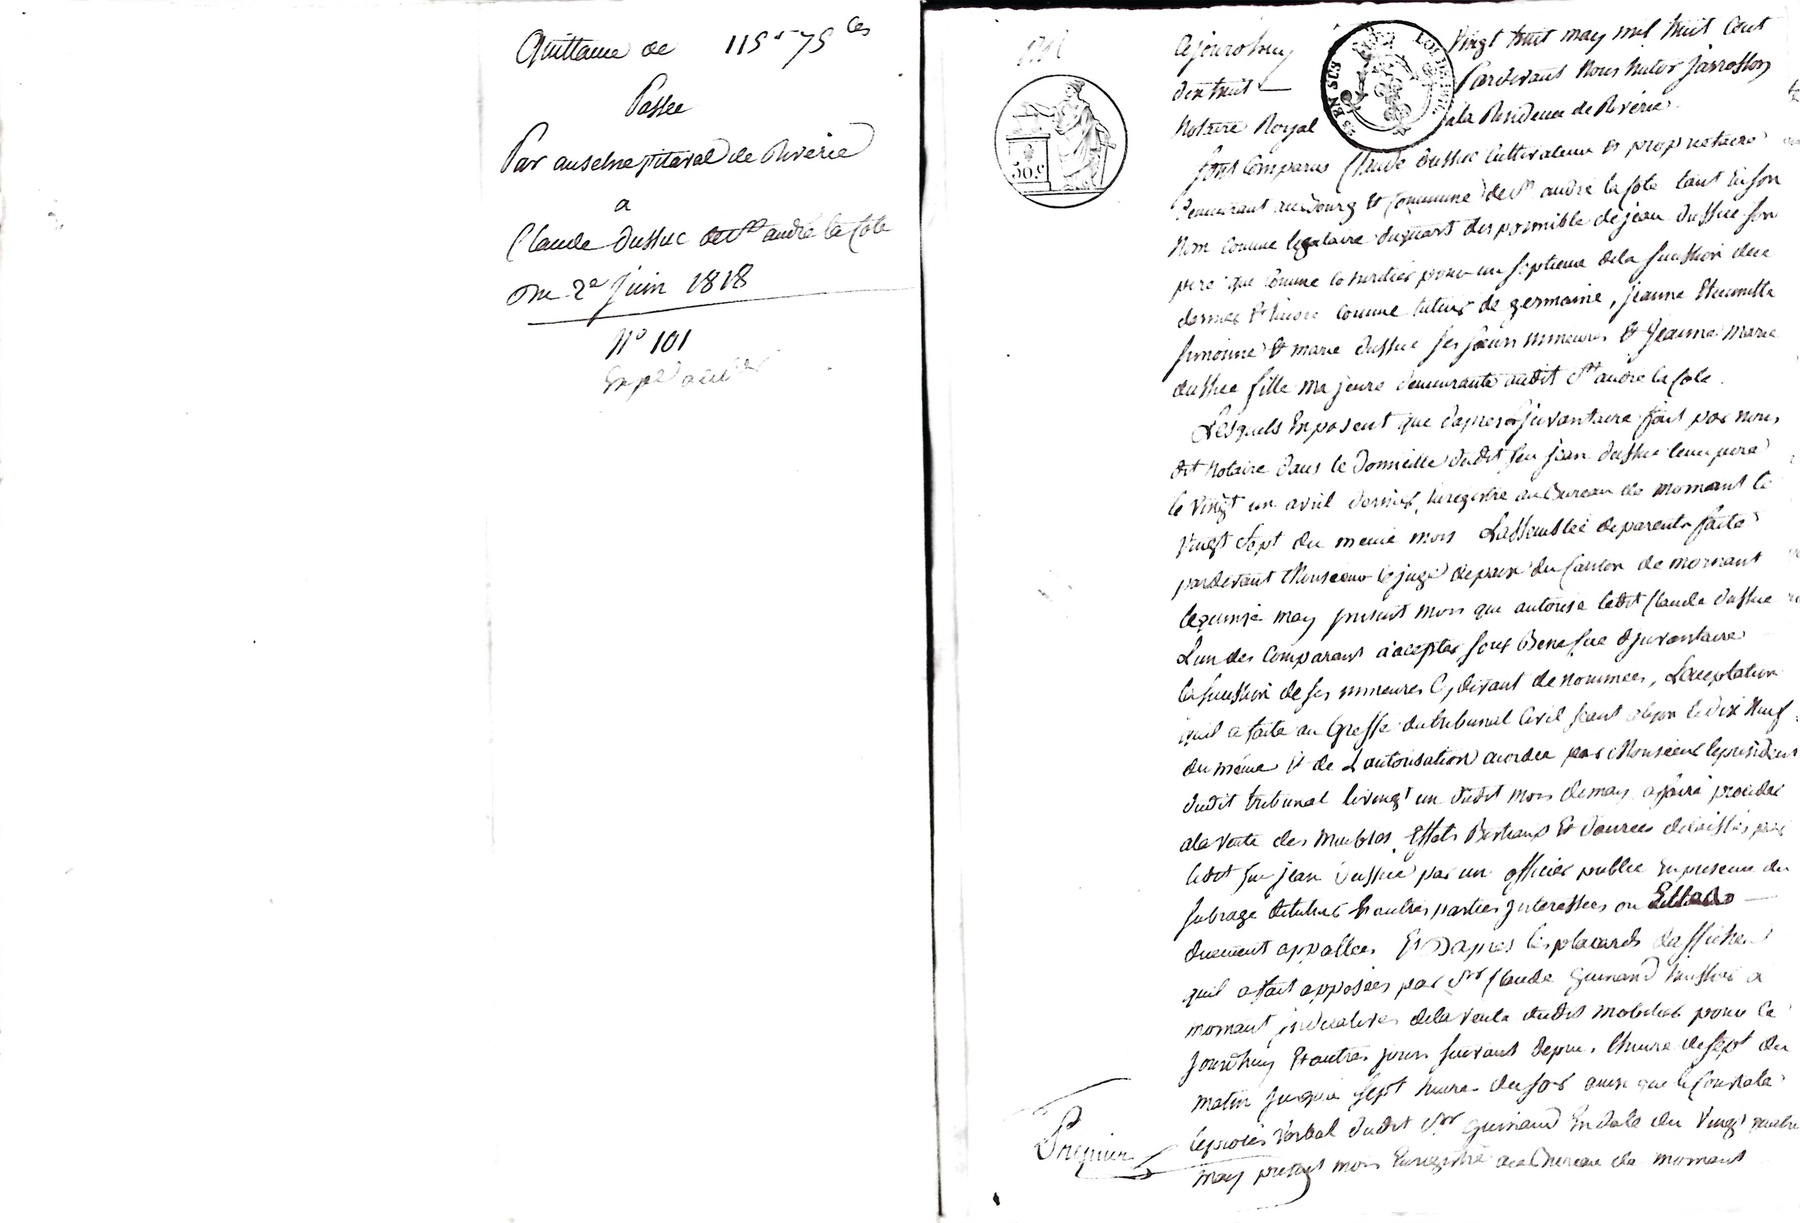 Quittance de 115 f 75 ces
Passée
Par anselne pitaval de Riverie
a
Claude dussuc de St andré la Cote
Du 2e juin 1818
No 101
Cejourdhuy vingt huit may mil huit cent
dix huit pardevant Nous Jarrosson
Notaire Royal a la Residence de Riverie
sont Comparus Claude dussuc Cultivateur et proprietaire
demeurant au Bourg et Commune de St andré la Cote tant En son
Nom comme legataire du quart disponnible de jean dussuc son
pere que comme coheritier pour un septieme de la succession de ce
dernier et encore comme tuteur de germaine, jeanne Etiennette
simonne et marie dussuc ses sœurs mineures et Jeanne marie
dussuc fille majeure demeurante audit St andré la Cote.
Lesquels Exposent que dapres Linvantaire fait par nous
dit Notaire dans le Domicille dudit feu jean dussuc leur pere
le vingt un avril dernier, Enregistré au Bureau de mornant le
vingt sept du meme mois Lassemblée de parents faite
pardevant Monsieur le juge de paix du Canton de mornant
le quinze may present mois qui autorise ledit Claude dussuc
L'un des Comparans a accepter sous Benefice dinvantaire
la succession de ses mineures Cy devant denommées, Lacceptation
quil a faite au Greffe du tribunal Civil seant a lyon le dix Neuf
du même et de Lautorisation accordée par Monsieur le president
dudit tribunal le vingt un dudit mois de may a faire proceder
a la vente des meubles, Effets Bestiaux Et danrées delaissés par
ledit feu jean dussuc par un officier public En presence du
subrogé tuteur et autres parties interessées ou
duement appallées Et Dapres les placards daffiches
quil a fait apposées par Sr Claude Guinand huissier a
mornant indicatives de la vente dudit mobilier pour Ce
jourdhuy Et autres jours suivant depuis l'heure de sept du
matin jusqua sept heures du soir ainsi que le Constate
le proces verbal dudit Sr Guinand En date du vingt quatre
may present mois Enregistré au Bureau de mornant
Premier